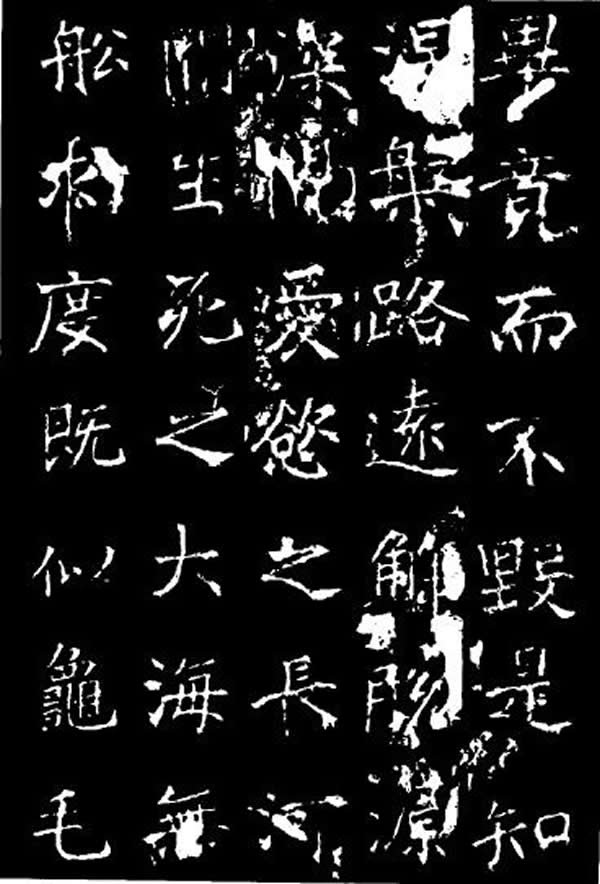 畢竟而不毀是知
涅槃路遠解脱源
深愛慾之長河
生死之大海無
舩求度既似龜毛